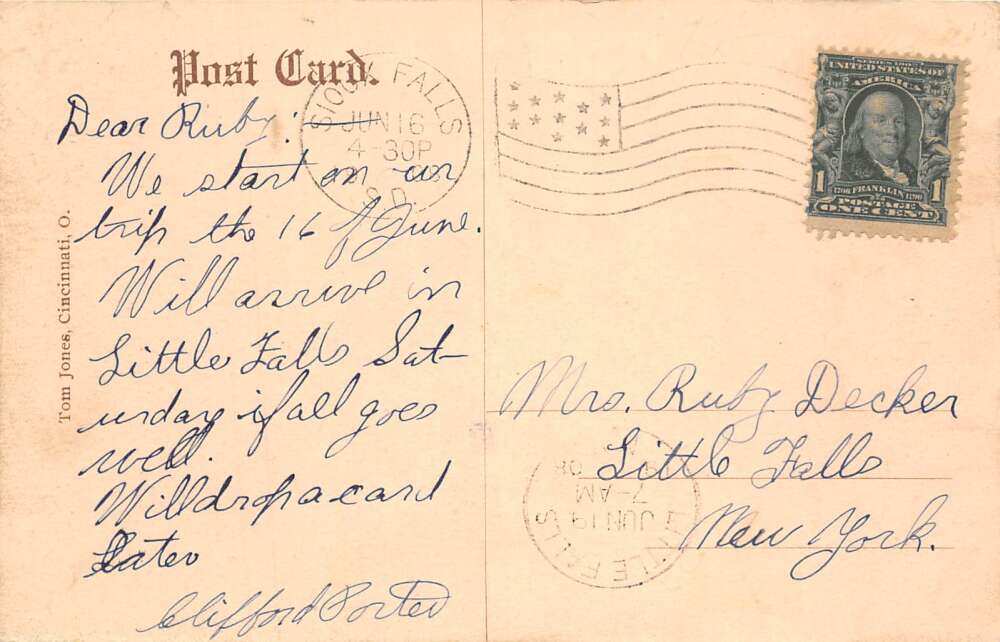 Post Card.
SIOUX FALLS
JUN 16
4-30P
S.D.
Dear Ruby:
We start on our
trip the 16 of June.
Will arrive in
Little Falls Sat-
urday if all goes
well.
Will drop a card
Later
Clifford Porter
Tom Jones, Cincinnati, O.
SERIES 1902
UNITED STATES OF
AMERICA
1 1706 FRANKLIN 1790 1
POSTAGE
ONE CENT
Mrs. Ruby Decker
Little Falls
New York.
LITTLE FALLS
JUN 19
7-AM
08